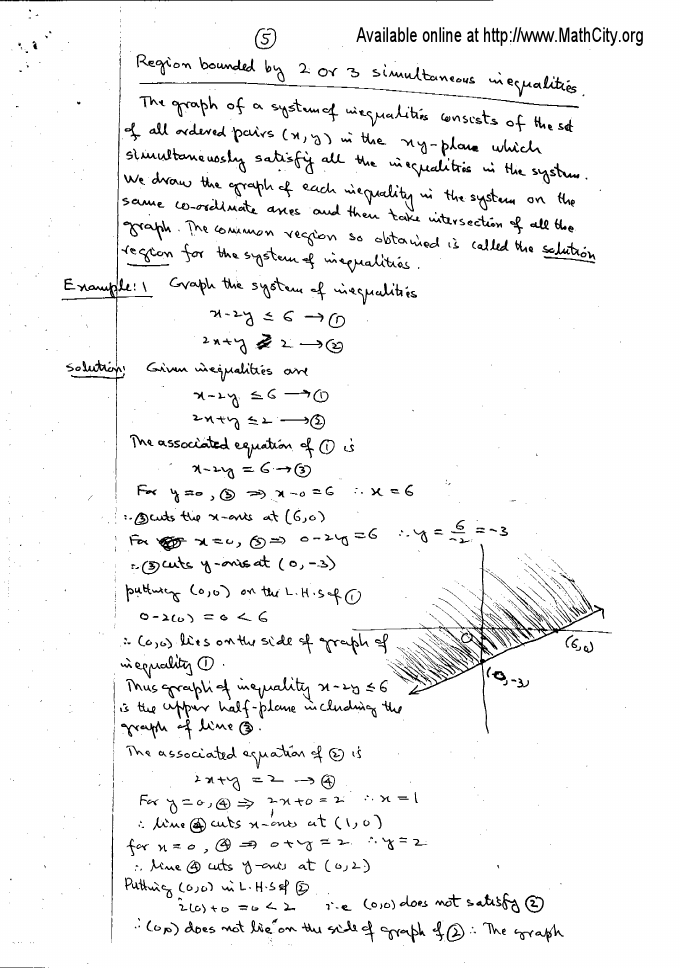 5 Available online at http://www.MathCity.org
Region bounded by 2 or 3 simultaneous inequalities.
The graph of a system of inequalities consists of the set
of all ordered pairs (x,y) in the xy-plane which
simultaneously satisfy all the inequalities in the system.
We draw the graph of each inequality in the system on the
same co-ordinate axes and then take intersection of all the
graph. The common region so obtained is called the solution
region for the system of inequalities.
Example: 1 Graph the system of inequalities
x-2y ≤ 6 → ①
2x+y ≥ 2 → ②
Solution: Given inequalities are
x-2y ≤ 6 → ①
2x+y ≤ 2 → ②
The associated equation of ① is
x-2y = 6 → ③
For y=0, ③ ⇒ x-0=6 ∴ x=6
∴ ③ cuts the x-axis at (6,0)
For x=0, ③ ⇒ 0-2y=6 ∴ y = 6/-2 = -3
∴ ③ cuts y-axis at (0,-3)
putting (0,0) on the L.H.S of ①
0-2(0) = 0 < 6
∴ (0,0) lies on the side of graph of
inequality ①.
Thus graph of inequality x-2y ≤ 6
is the upper half-plane including the
graph of line ③.
0
(6,0)
(0,-3)
The associated equation of ② is
2x+y = 2 → ④
For y=0, ④ ⇒ 2x+0=2 ∴ x=1
∴ line ④ cuts x-axis at (1,0)
for x=0, ④ ⇒ 0+y=2 ∴ y=2
∴ line ④ cuts y-axis at (0,2)
Putting (0,0) in L.H.S of ②
2(0)+0 = 0 < 2 i.e (0,0) does not satisfy ②
∴ (0,0) does not lie on the side of graph of ② ∴ The graph